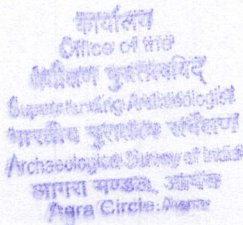 कार्यालय
Office of the
अधीक्षण पुरातत्वविद्
Superintending Archaeologist
भारतीय पुरातत्व सर्वेक्षण
Archaeological Survey of India
आगरा मण्डल, आगरा
Agra Circle, Agra